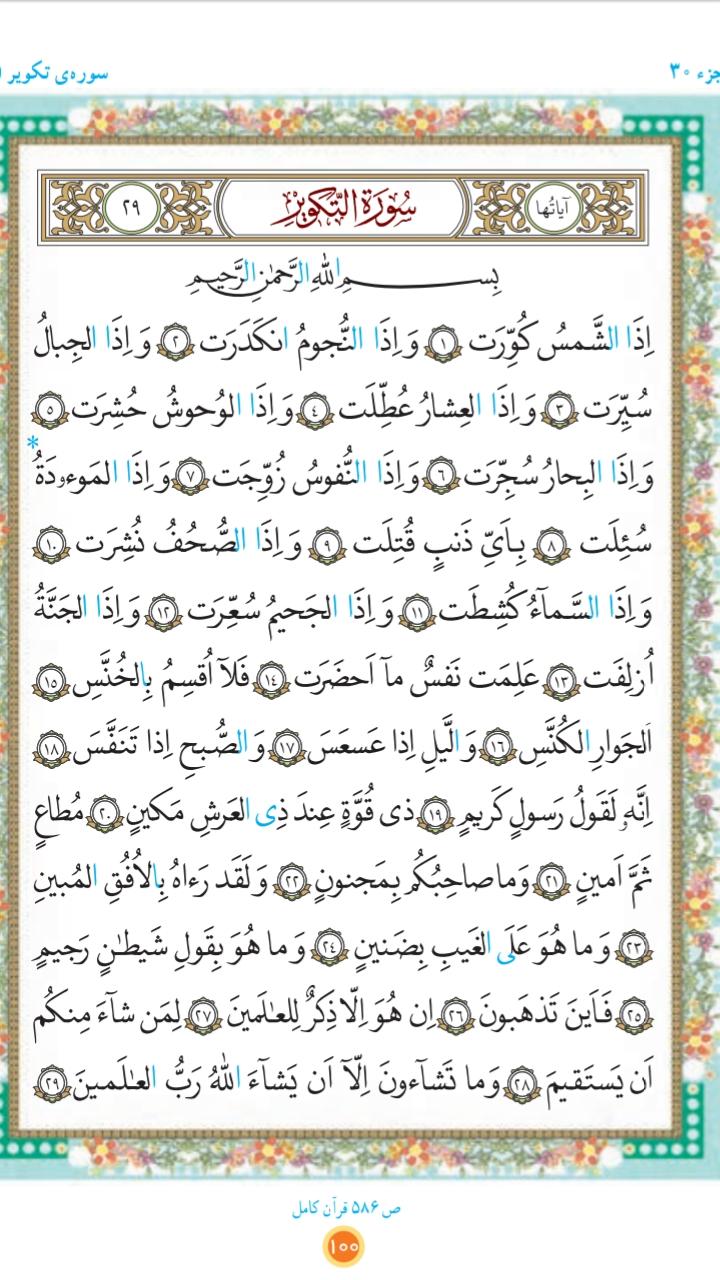 جزء ۳۰
سوره‌ی تکویر
آیاتُها
سُورَةُ التَّكوير
۲۹
بِسمِ اللّٰهِ الرَّحمٰنِ الرَّحيمِ
اِذَا الشَّمسُ كُوِّرَت ۱ وَ اِذَا النُّجومُ انكَدَرَت ۲ وَ اِذَا الجِبالُ
سُيِّرَت ۳ وَ اِذَا العِشارُ عُطِّلَت ٤ وَ اِذَا الوُحوشُ حُشِرَت ٥
وَ اِذَا البِحارُ سُجِّرَت ٦ وَ اِذَا النُّفوسُ زُوِّجَت ۷ وَ اِذَا المَوءودَةُ *
سُئِلَت ۸ بِاَىِّ ذَنبٍ قُتِلَت ۹ وَ اِذَا الصُّحُفُ نُشِرَت ۱۰
وَ اِذَا السَّمآءُ كُشِطَت ۱۱ وَ اِذَا الجَحيمُ سُعِّرَت ۱۲ وَ اِذَا الجَنَّةُ
اُزلِفَت ۱۳ عَلِمَت نَفسٌ مآ اَحضَرَت ۱٤ فَلآ اُقسِمُ بِالخُنَّسِ ۱٥
اَلجَوارِ الكُنَّسِ ۱٦ وَ الَّيلِ اِذا عَسعَسَ ۱۷ وَ الصُّبحِ اِذا تَنَفَّسَ ۱۸
اِنَّهو لَقَولُ رَسولٍ كَريمٍ ۱۹ ذى قُوَّةٍ عِندَ ذِى العَرشِ مَكينٍ ۲۰ مُطاعٍ
ثَمَّ اَمينٍ ۲۱ وَ ما صاحِبُكُم بِمَجنونٍ ۲۲ وَ لَقَد رَءاهُ بِالاُفُقِ المُبينِ
۲۳ وَ ما هُوَ عَلَى الغَيبِ بِضَنينٍ ۲٤ وَ ما هُوَ بِقَولِ شَيطٰنٍ رَجيمٍ
۲٥ فَاَينَ تَذهَبونَ ۲٦ اِن هُوَ اِلّا ذِكرٌ لِلعٰلَمينَ ۲۷ لِمَن شآءَ مِنكُم
اَن يَستَقيمَ ۲۸ وَ ما تَشآءونَ اِلّآ اَن يَشآءَ اللّٰهُ رَبُّ العٰلَمينَ ۲۹
ص ۵۸۶ قرآن کامل
۱۰۰